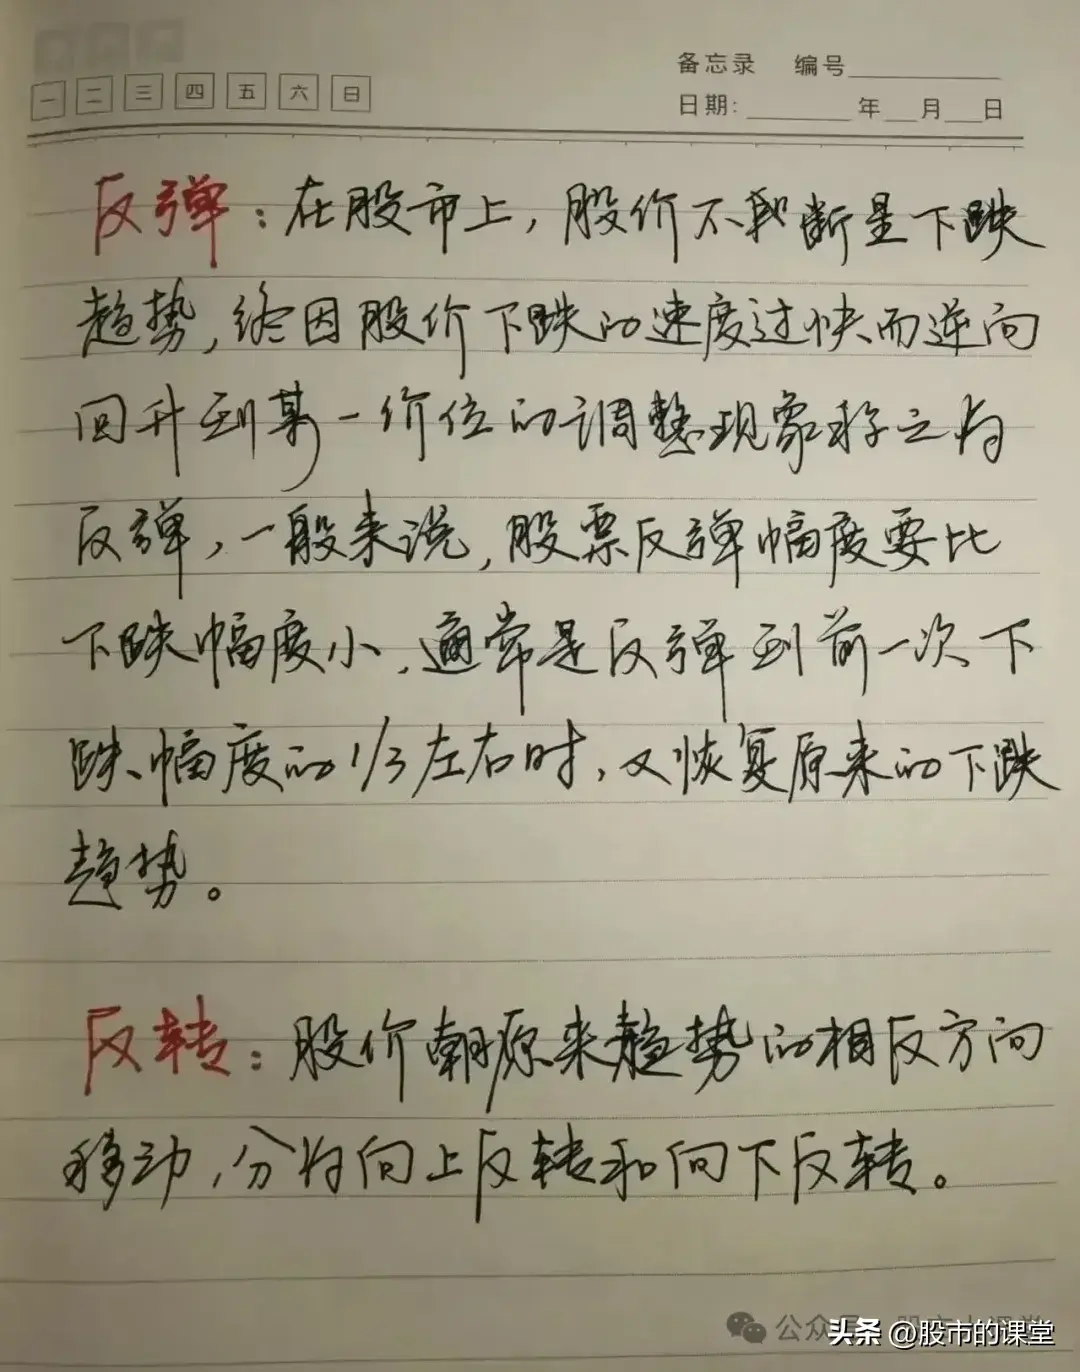 一 二 三 四 五 六 日
备忘录 编号
日期: 年 月 日
反弹：在股市上，股价不断呈下跌
趋势，终因股价下跌的速度过快而逆向
回升到某一价位的调整现象称之为
反弹，一般来说，股票反弹幅度要比
下跌幅度小，通常是反弹到前一次下
跌幅度的1/3左右时，又恢复原来的下跌
趋势。
反转：股价朝原来趋势的相反方向
移动，分为向上反转和向下反转。
公众
头条 @股市的课堂